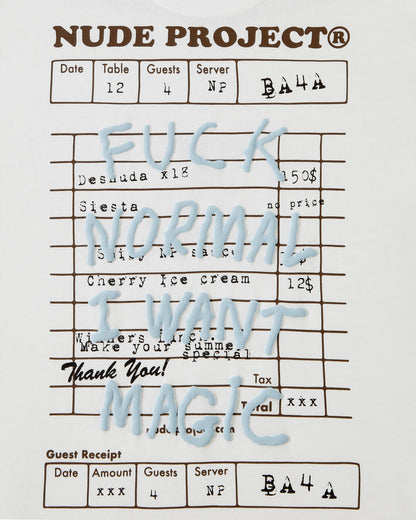 NUDE PROJECT®
Date Table Guests Server BA4A
12 4 NP
FUCK
Desnuda x18 150$
Siesta no price
NORMAL
NP sauce $
Cherry Ice cream 12$
I WANT
Winners Lunch.
Make your summe
special
Thank You!
Tax
MAGIC
Total xxx
nudeproject.com
Guest Receipt
Date Amount Guests Server BA4A
xxx 4 NP